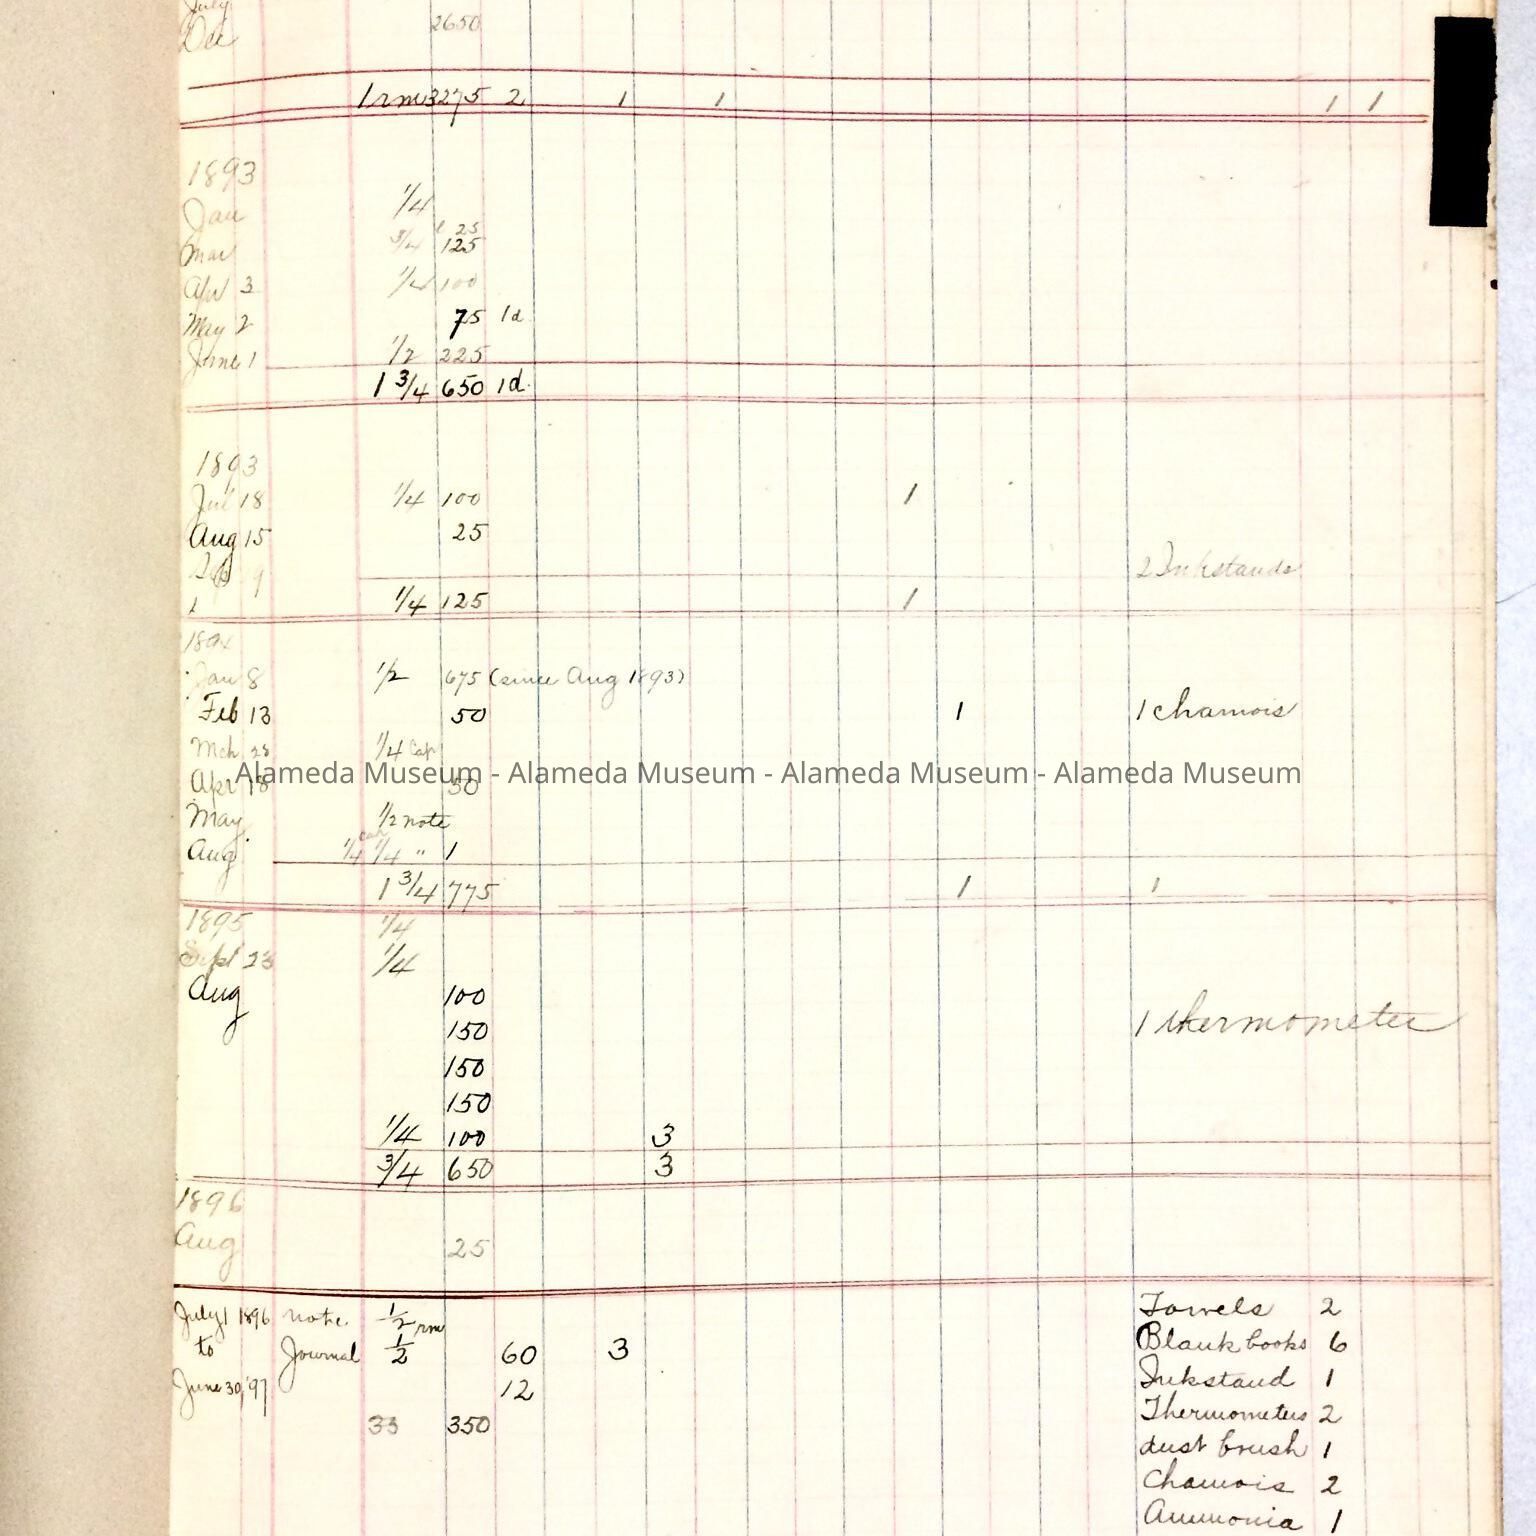 July
Dec 2650
1 rm 3275 2 1 1 1 1
1893
Jan 1/4
25
Mar 3/4 125
Apr 3 1/4 100
May 2 75 1d
June 1 1/2 225
1 3/4 650 1d.
1893
Jul 18 1/4 100 1
Aug 15 25
Sep 9 2 Inkstands
1/4 125 1
1894
Jan 8 1/2 675 (since Aug 1893)
Feb 13 50 1 1 chamois
Mch 28 1/4 Cap
Alameda Museum - Alameda Museum - Alameda Museum - Alameda Museum
Apr 18 50
May 1/2 note
cap
Aug 1/4 1/4 " 1
1 3/4 775 1 1
1895 1/4
Sept 23 1/4
Aug 100
150 1 thermometer
150
150
1/4 100 3
3/4 650 3
1896
Aug 25
July 1 1896 note 1/2 rm Towels 2
to Journal 1/2 60 3 Blank books 6
June 30, '97 12 Inkstand 1
33 350 Thermometers 2
dust brush 1
Chamois 2
Ammonia 1